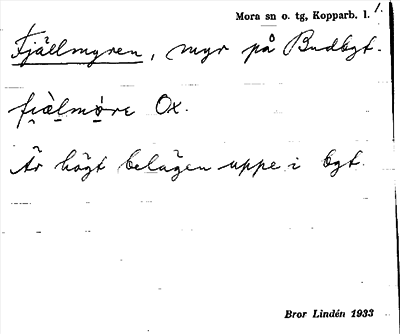 Mora sn o. tg, Kopparb. l. 1.
Fjällmyren, myr på Budbgt.
fjèlmỳre Ox.
Är högt belägen uppe i bgt.
Bror Lindén 1933